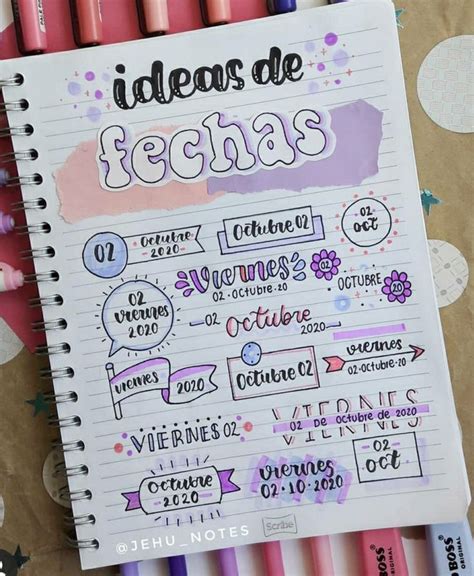 ideas de
fechas
02 Octubre 2020
Octubre 02
02
OCT
02
viernes
2020
Viernes 02
02·OCTUBRE·2020
OCTUBRE 20
02 Octubre 2020
viernes 2020
Octubre 02
viernes
02·Octubre·20
VIERNES 02
VIERNES
02 DE Octubre de 2020
Octubre
2020
viernes
02·10·2020
02
OCT
@JEHU_NOTES
Scribe
BOSS
ORIGINAL
BOSS